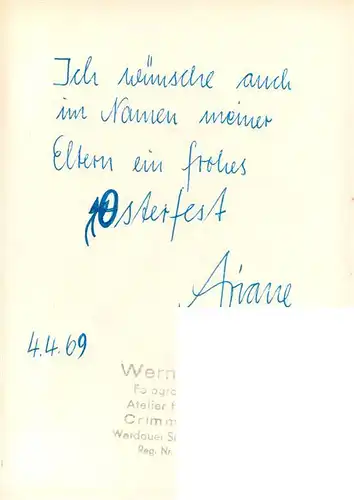 Ich wünsche auch
im Namen meiner
Eltern ein frohes
Osterfest
Ariane
4.4.69
Wern
Fotogra
Atelier f
Crimm
Werdauer S
Reg. Nr.